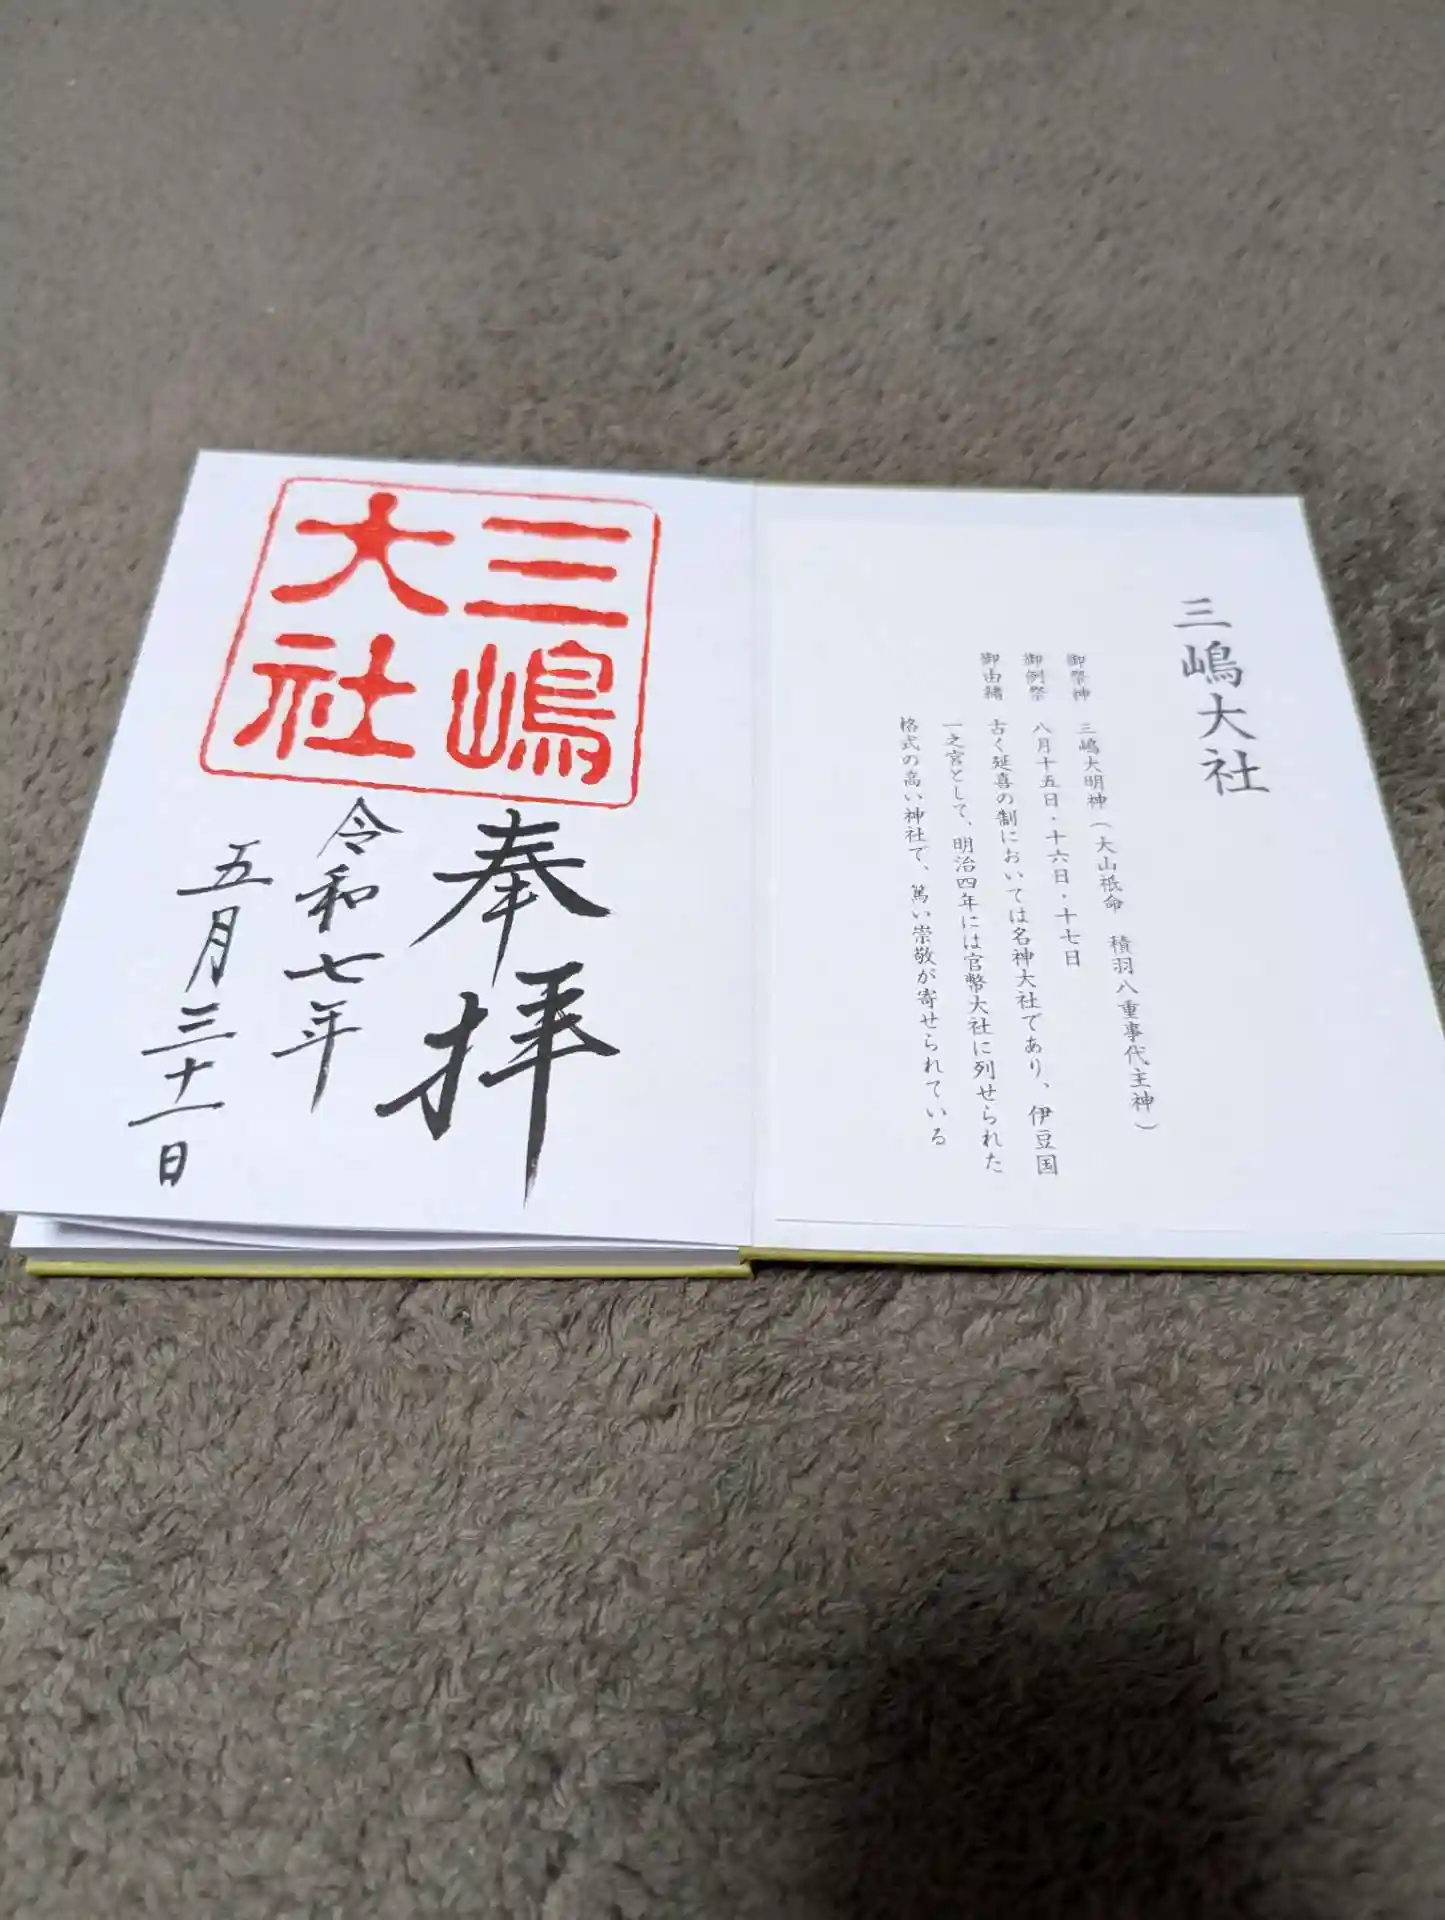 三嶋大社
御祭神 三嶋大明神(大山祇命 積羽八重事代主神)
御例祭 八月十五日・十六日・十七日
御由緒 古く延喜の制においては名神大社であり、伊豆国
一之宮として、明治四年には官幣大社に列せられた
格式の高い神社で、篤い崇敬が寄せられている
三嶋
大社
奉拝
令和七年
五月三十一日